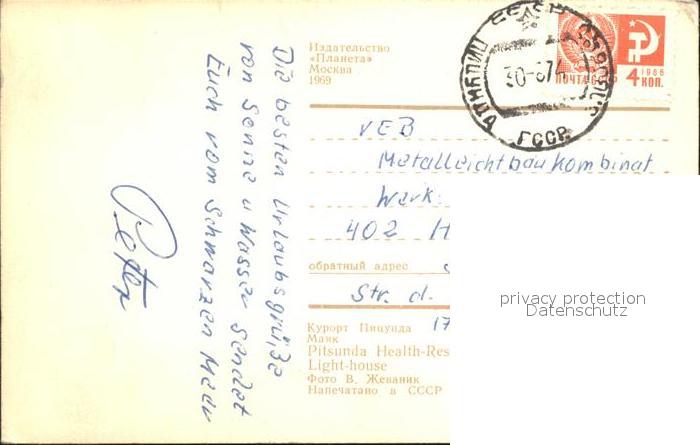 Die besten Urlaubsgrüße
von Sonne u Wasser sendet
Euch vom Schwarzen Meer
Peter
Издательство
«Планета»
Москва
1969
ПОЧТА СССР
1966
4 КОП.
30-
ГССР
VEB
Metalleichtbaukombinat
Werk:
402 H
обратный адрес
Str. d.
17
Курорт Пицунда
Маяк
Pitsunda Health-Res
Light-house
Фото В. Жеваник
Напечатано в СССР
privacy protection
Datenschutz